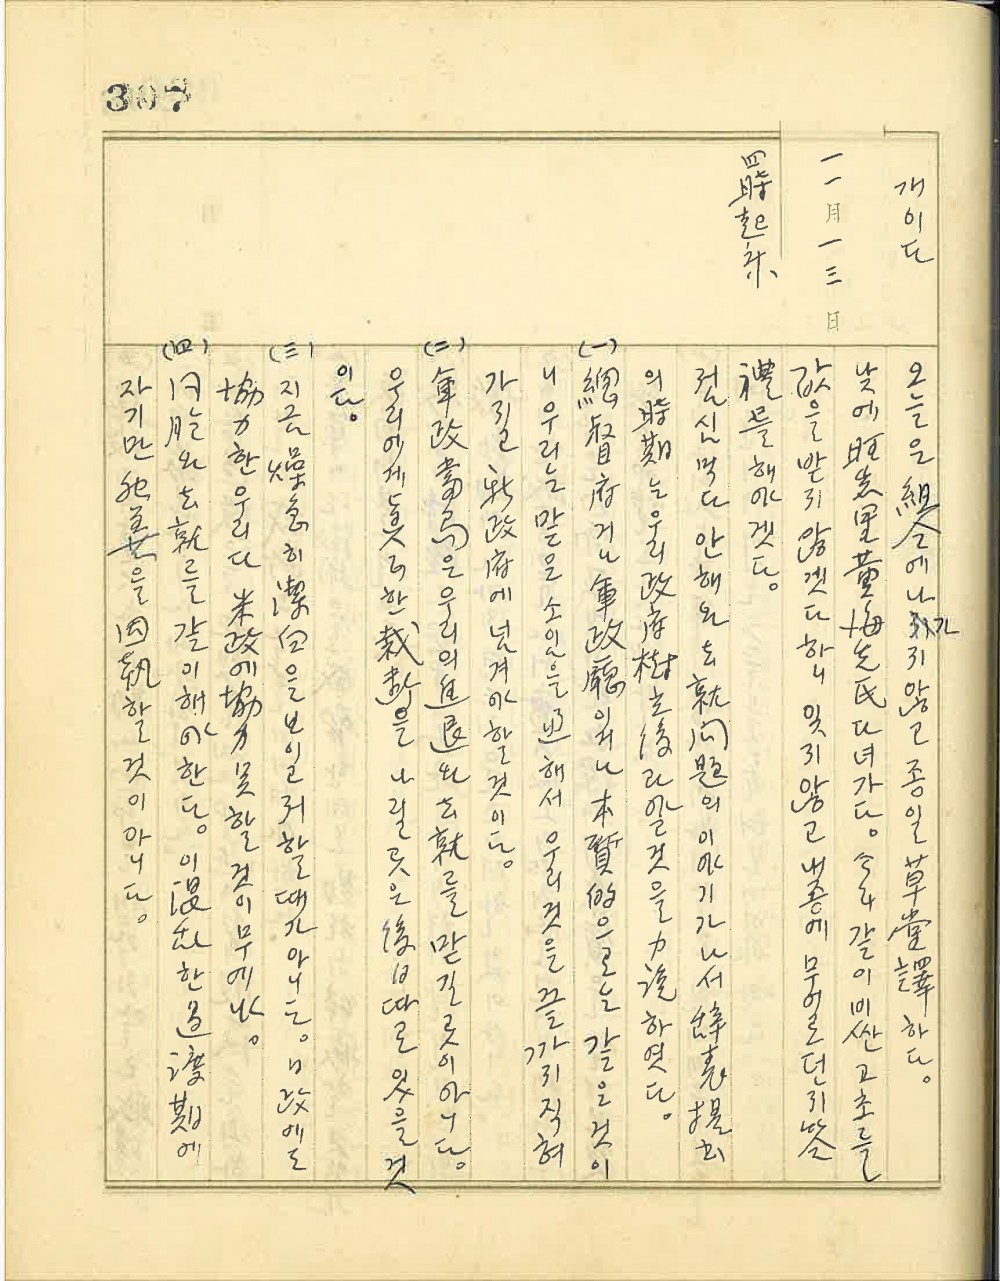 307
개이다
一一月一三日
四時起床
오늘은 組合에 나가지 않고 종일 草堂譯하다。
낮에 旺志里 黃梅先氏 다녀가다。 今年 같이 비싼 고초를
값을 받지 않겠다 하니 잊지 않고 내종에 무어로던지 答
禮를 해야겟다。
점심 먹다 안해와 去就問題의 이야기가 나서 辭表提出
의 時期는 우리 政府樹立後라야 할것을 力說하엿다。
(一) 總督府거나 軍政廳이거나 本質的으로는 같은것이
니 우리는 맡은 소임을 通해서 우리것을 끝까지 직혀
가지고 新政府에 넘겨야할것이다。
(二) 軍政當局은 우리의 進退와 去就를 맡길곳이아니다。
우리에게 眞正한 裁斷을 나릴곳은 後日 따로 있을것
이다。
(三) 지금 燥急히 潔白을 보이고저할때가아니다。 日政에도
協力한 우리다 米政에 協力 못할것이 무에냐。
(四) 同胞와 去就를 같이해야한다。 이 混亂한 過渡期에
자기만 을 固執할것이아니다。